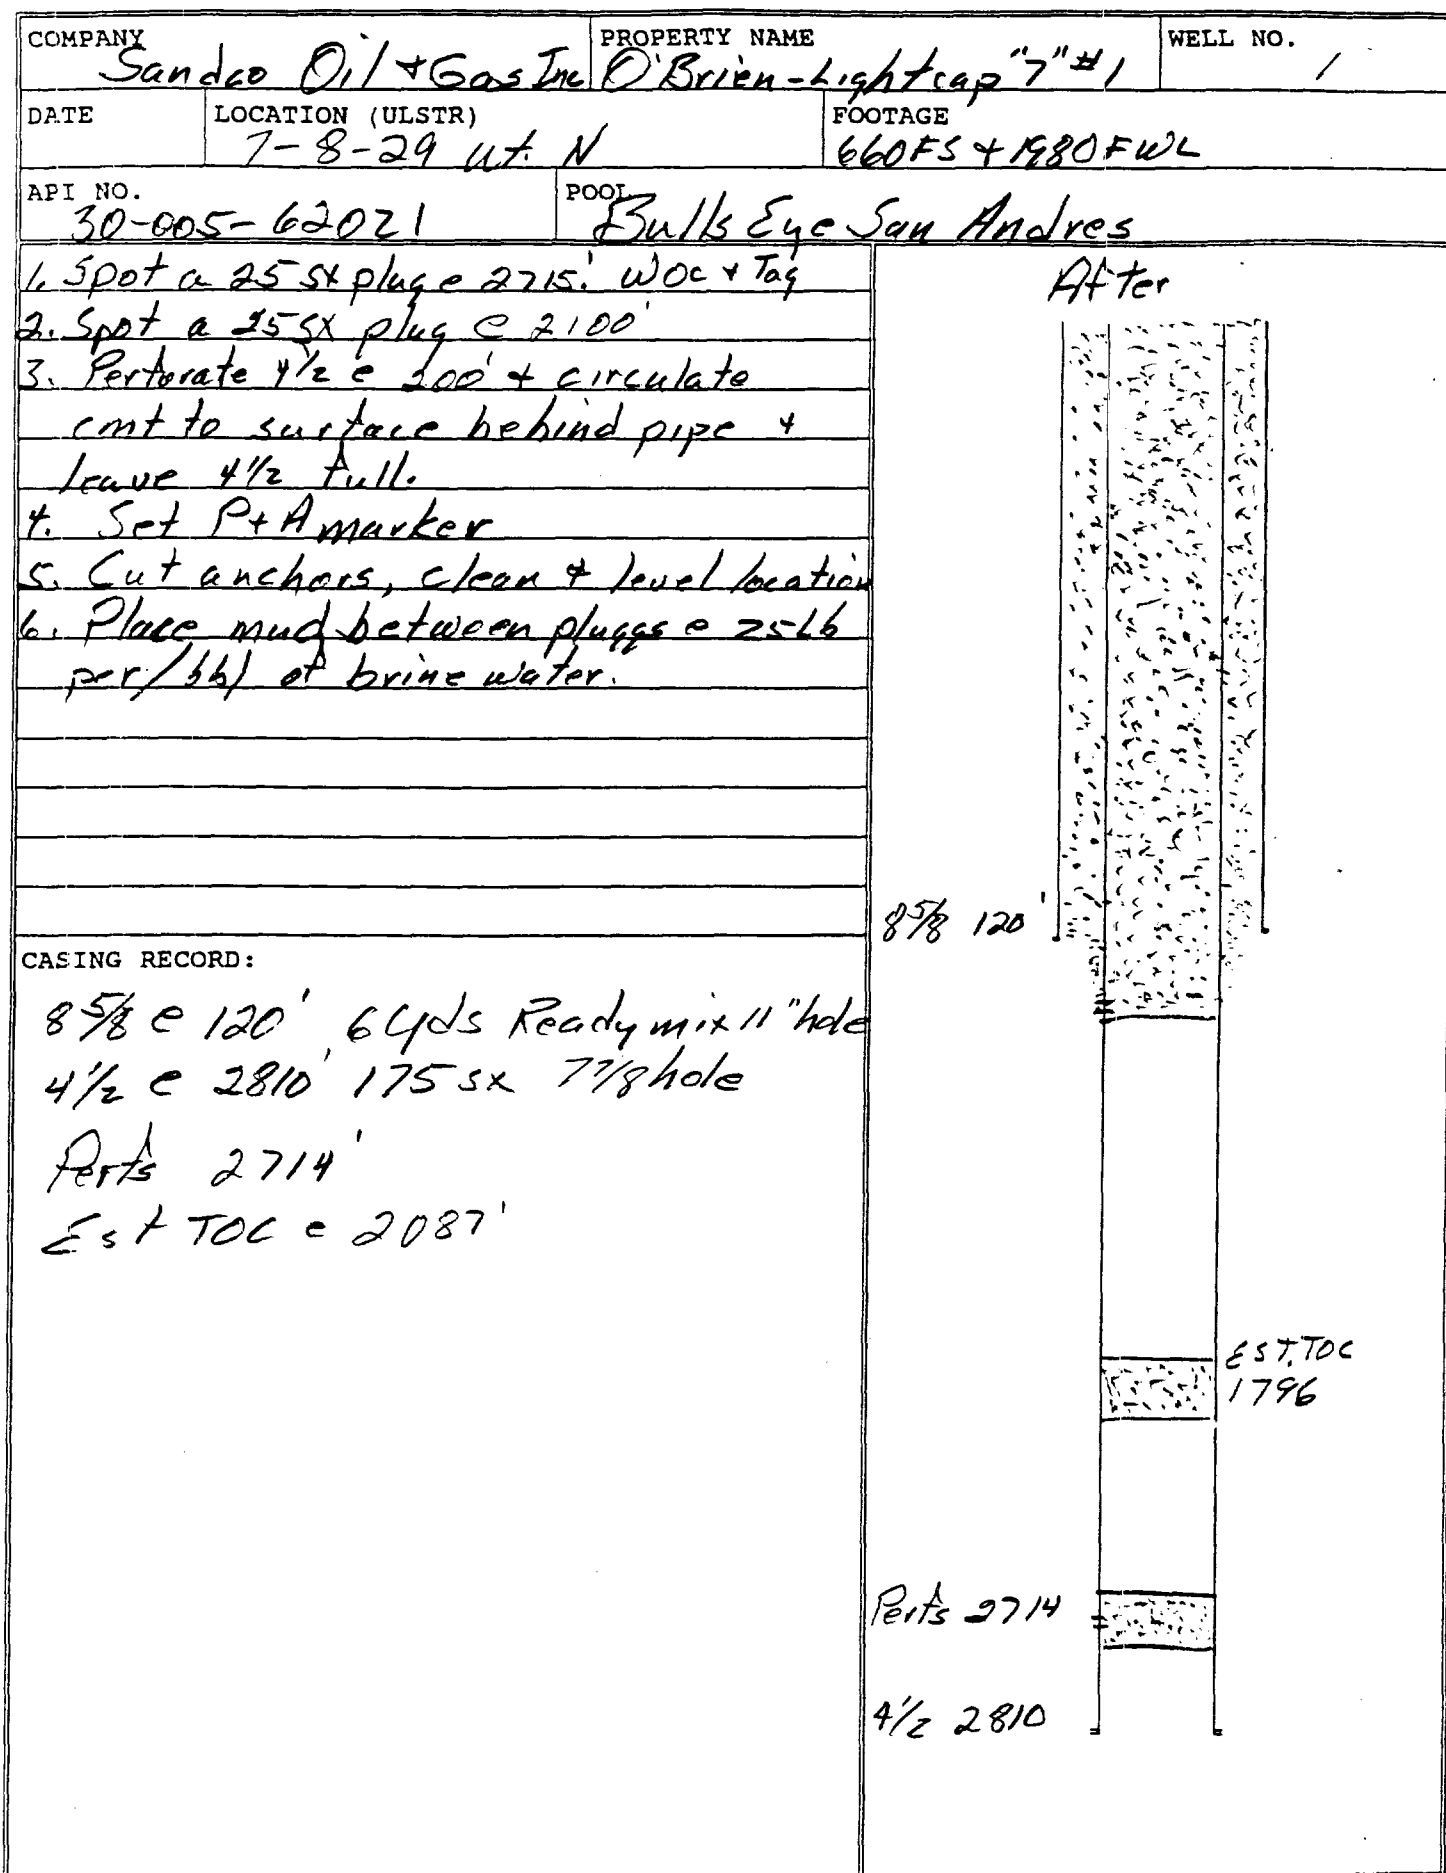 COMPANY PROPERTY NAME WELL NO.
Sandco Oil + Gas Inc O'Brien-Lightcap "7" #1 1
DATE LOCATION (ULSTR) FOOTAGE
7-8-29 ut. N 660FS + 1980FWL
API NO. POOL
30-005-62021 Bulls Eye San Andres
1. Spot a 25 sx plug e 2715.' WOC + Tag
2. Spot a 25 sx plug e 2100'
3. Perforate 4½ e 200' + circulate
cmt to surface behind pipe +
leave 4½ full.
4. Set P+A marker
5. Cut anchors, clean + level location
6. Place mud between pluggs e 25Lb
per/bbl of brine water.
CASING RECORD:
8⅝ e 120' 6 yds Ready mix 11" hole
4½ e 2810' 175 sx 7⅞ hole
Perfs 2714'
Est TOC e 2087'
After
8⅝ 120'
EST. TOC
1796
Perfs 2714
4½ 2810